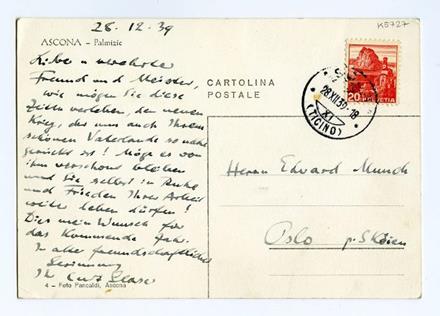 28.12.39
K5727
ASCONA – Palmizie
Lieber u. verehrter
Freund und Meister,
wie mögen Sie diese
Zeiten verleben, der neuen
Krieg, der nun auch Ihrem
schönen Vaterlande so nahe
gerückt ist! Möge es von
ihm verschont bleiben
und Sie selbst in Ruhe
und Frieden Ihrer Arbeit
weiter leben dürfen!
Dies mein Wunsch für
das kommende Jahr.
In alter freundschaftlicher
Gesinnung
Ihr Curt Glaser
4 – Foto Pancaldi, Ascona
CARTOLINA
POSTALE
28.XII.39-18
XI
(TICINO)
20 HELVETIA
Herrn Edvard Munch
Oslo p. Sköien